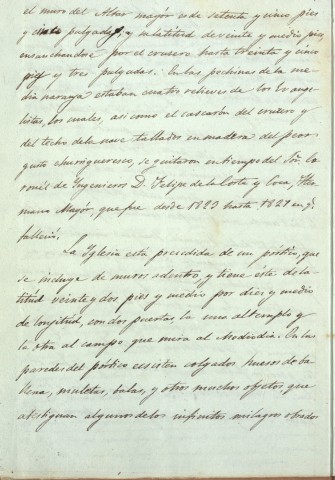 el muro del Altar mayor es de setenta y cinco pies
y siete pulgadas, y su latitud de veinte y medio pies,
ensanchandose por el crucero hasta treinta y cinco
pies y tres pulgadas. En las pechinas de la me-
dia naranja estaban cuatro relieves de los Evange-
listas, los cuales, asi como el cascarón del crucero y
del techo de la nave tallados en madera del peor
gusto churrigueresco, se quitaron en tiempo del Sr. Co-
ronel de Ingenieros D. Felipe de la Corte y Coca, Her-
mano Mayor, que fue desde 1823 hasta 1827 en q.
falleció.
La Iglesia está precedida de un pórtico, que
se incluye de muros adentro, y tiene este de la-
titud veinte y dos pies y medio por diez y medio
de longitud, con dos puertas, la una al templo y
la otra al campo, que mira al Mediodia. En las
paredes del pórtico ecsisten colgados huesos de ba-
llena, muletas, balas, y otros muchos objetos que
atestiguan algunos de los infinitos milagros obrados